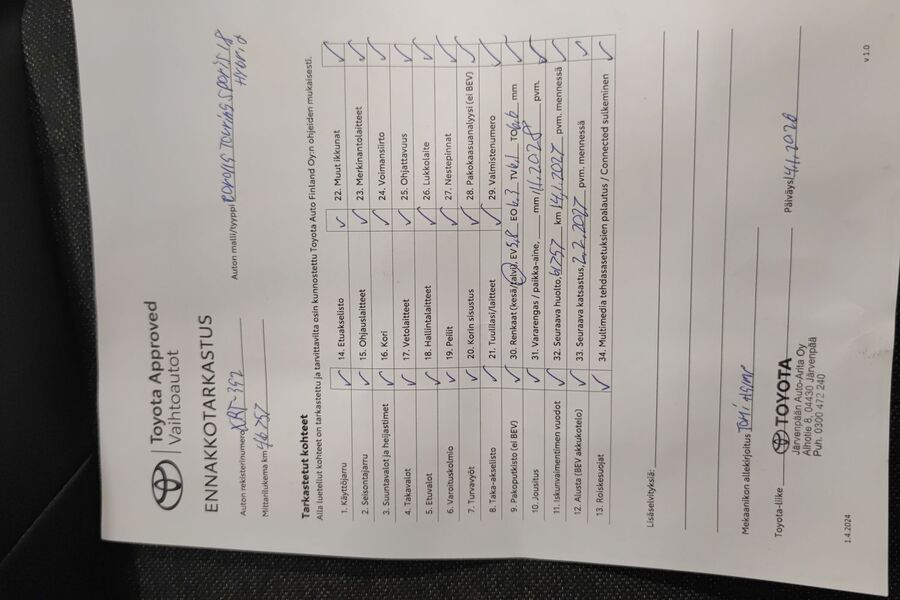 Toyota Approved
Vaihtoautot
ENNAKOTARKASTUS
Auton rekisterinumero XRT-392 Auton malli/tyyppi COROLLA TOURING SPORTS 1.8 HYBRID
Mittarilukema km 46757
Tarkastetut kohteet
Alla luetellut kohteet on tarkastettu ja tarvittavilta osin kunnostettu Toyota Auto Finland Oy:n ohjeiden mukaisesti.
1. Käyttöjarru ✓ 14. Etuakselisto ✓ 22. Muut ikkunat ✓
2. Seisontajarru ✓ 15. Ohjauslaitteet ✓ 23. Merkinantolaitteet ✓
3. Suuntavalot ja heijastimet ✓ 16. Kori ✓ 24. Voimansiirto ✓
4. Takavalot ✓ 17. Vetolaitteet ✓ 25. Ohjattavuus ✓
5. Etuvalot ✓ 18. Hallintalaitteet ✓ 26. Lukkolaite ✓
6. Varoituskolmio ✓ 19. Peilit ✓ 27. Nestepinnat ✓
7. Turvavyöt ✓ 20. Korin sisustus ✓ 28. Pakokaasuanalyysi (ei BEV) ✓
8. Taka-akselisto ✓ 21. Tuulilasi/laitteet ✓ 29. Valmistenumero ✓
9. Pakoputkisto (ei BEV) ✓ 30. Renkaat (kesä/talvi), EV 5,8 EO 6,3 TV 6,1 TO 6,6 mm ✓
10. Jousitus ✓ 31. Vararengas / paikka-aine, mm 11.2028 pvm. ✓
11. Iskunvaimentimien vuodot ✓ 32. Seuraava huolto, 61757 km 14.1.2027 pvm. mennessä ✓
12. Alusta (BEV akkukotelo) ✓ 33. Seuraava katsastus, 2.2.2027 pvm. mennessä ✓
13. Roiskesuojat ✓ 34. Multimedia tehdasasetuksien palautus / Connected sulkeminen ✓
Lisäselvityksiä:
Mekaanikon allekirjoitus TOMI
Toyota-liike TOYOTA Päiväys 14.1.2026
Järvenpään Auto-Arita Oy
Alhotie 8, 04430 Järvenpää
Puh. 0300 472 240
1.4.2024 v 1.0